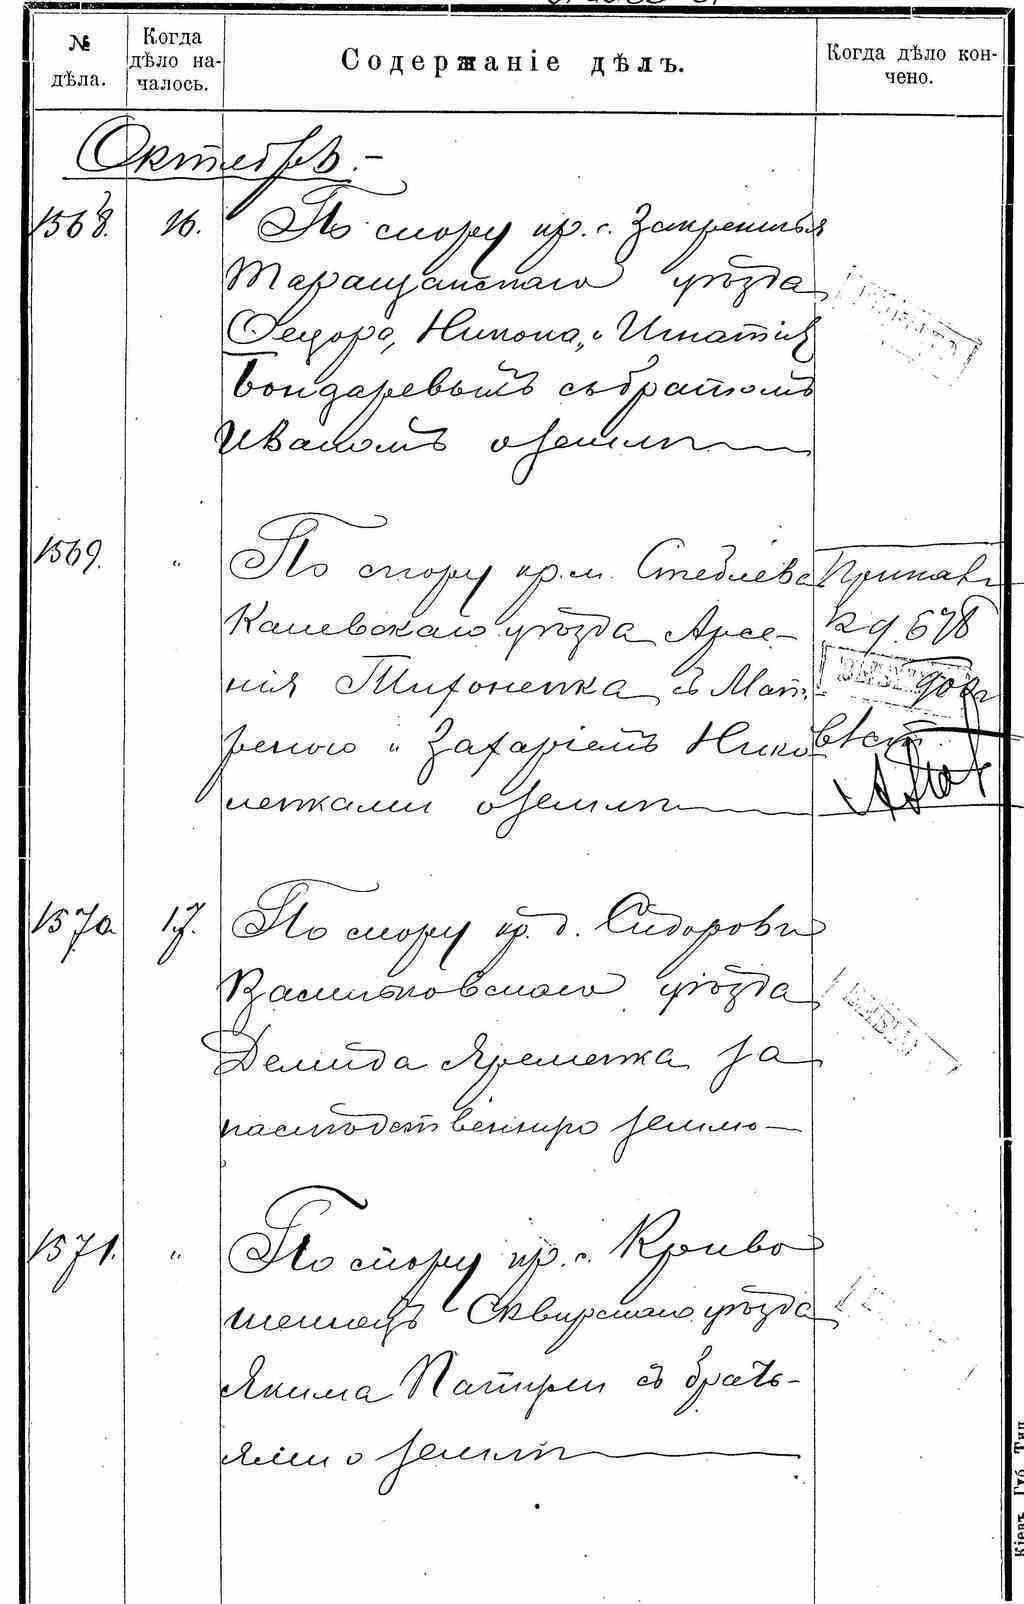 № дѣла.
Когда дѣло на-
чалось.
Содержаніе дѣлъ.
Когда дѣло кон-
чено.
Октябрь.-
1568. 16. По спору кр. с. Закренычья
Таращанскаго уѣзда
Федора, Никона, и Игнатія
Бондаревыхъ съ братомъ
Иваномъ о землѣ
1569. „ По спору кр. м. Стеблева
Каневскаго уѣзда Арсе-
нія Тихоненка съ Мат-
реною и Захаріемъ Нико
ненками о землѣ
къ д. 678
1570 17. По спору кр. д. Сидоровки
Васильковскаго уѣзда
Демида Яременка за
наслѣдственную землю
1571. „ По спору кр. с. Криво
шеинецъ Сквирскаго уѣзда
Якима Патирли съ брать-
ями о землѣ
Кіевъ. Губ. Тип.